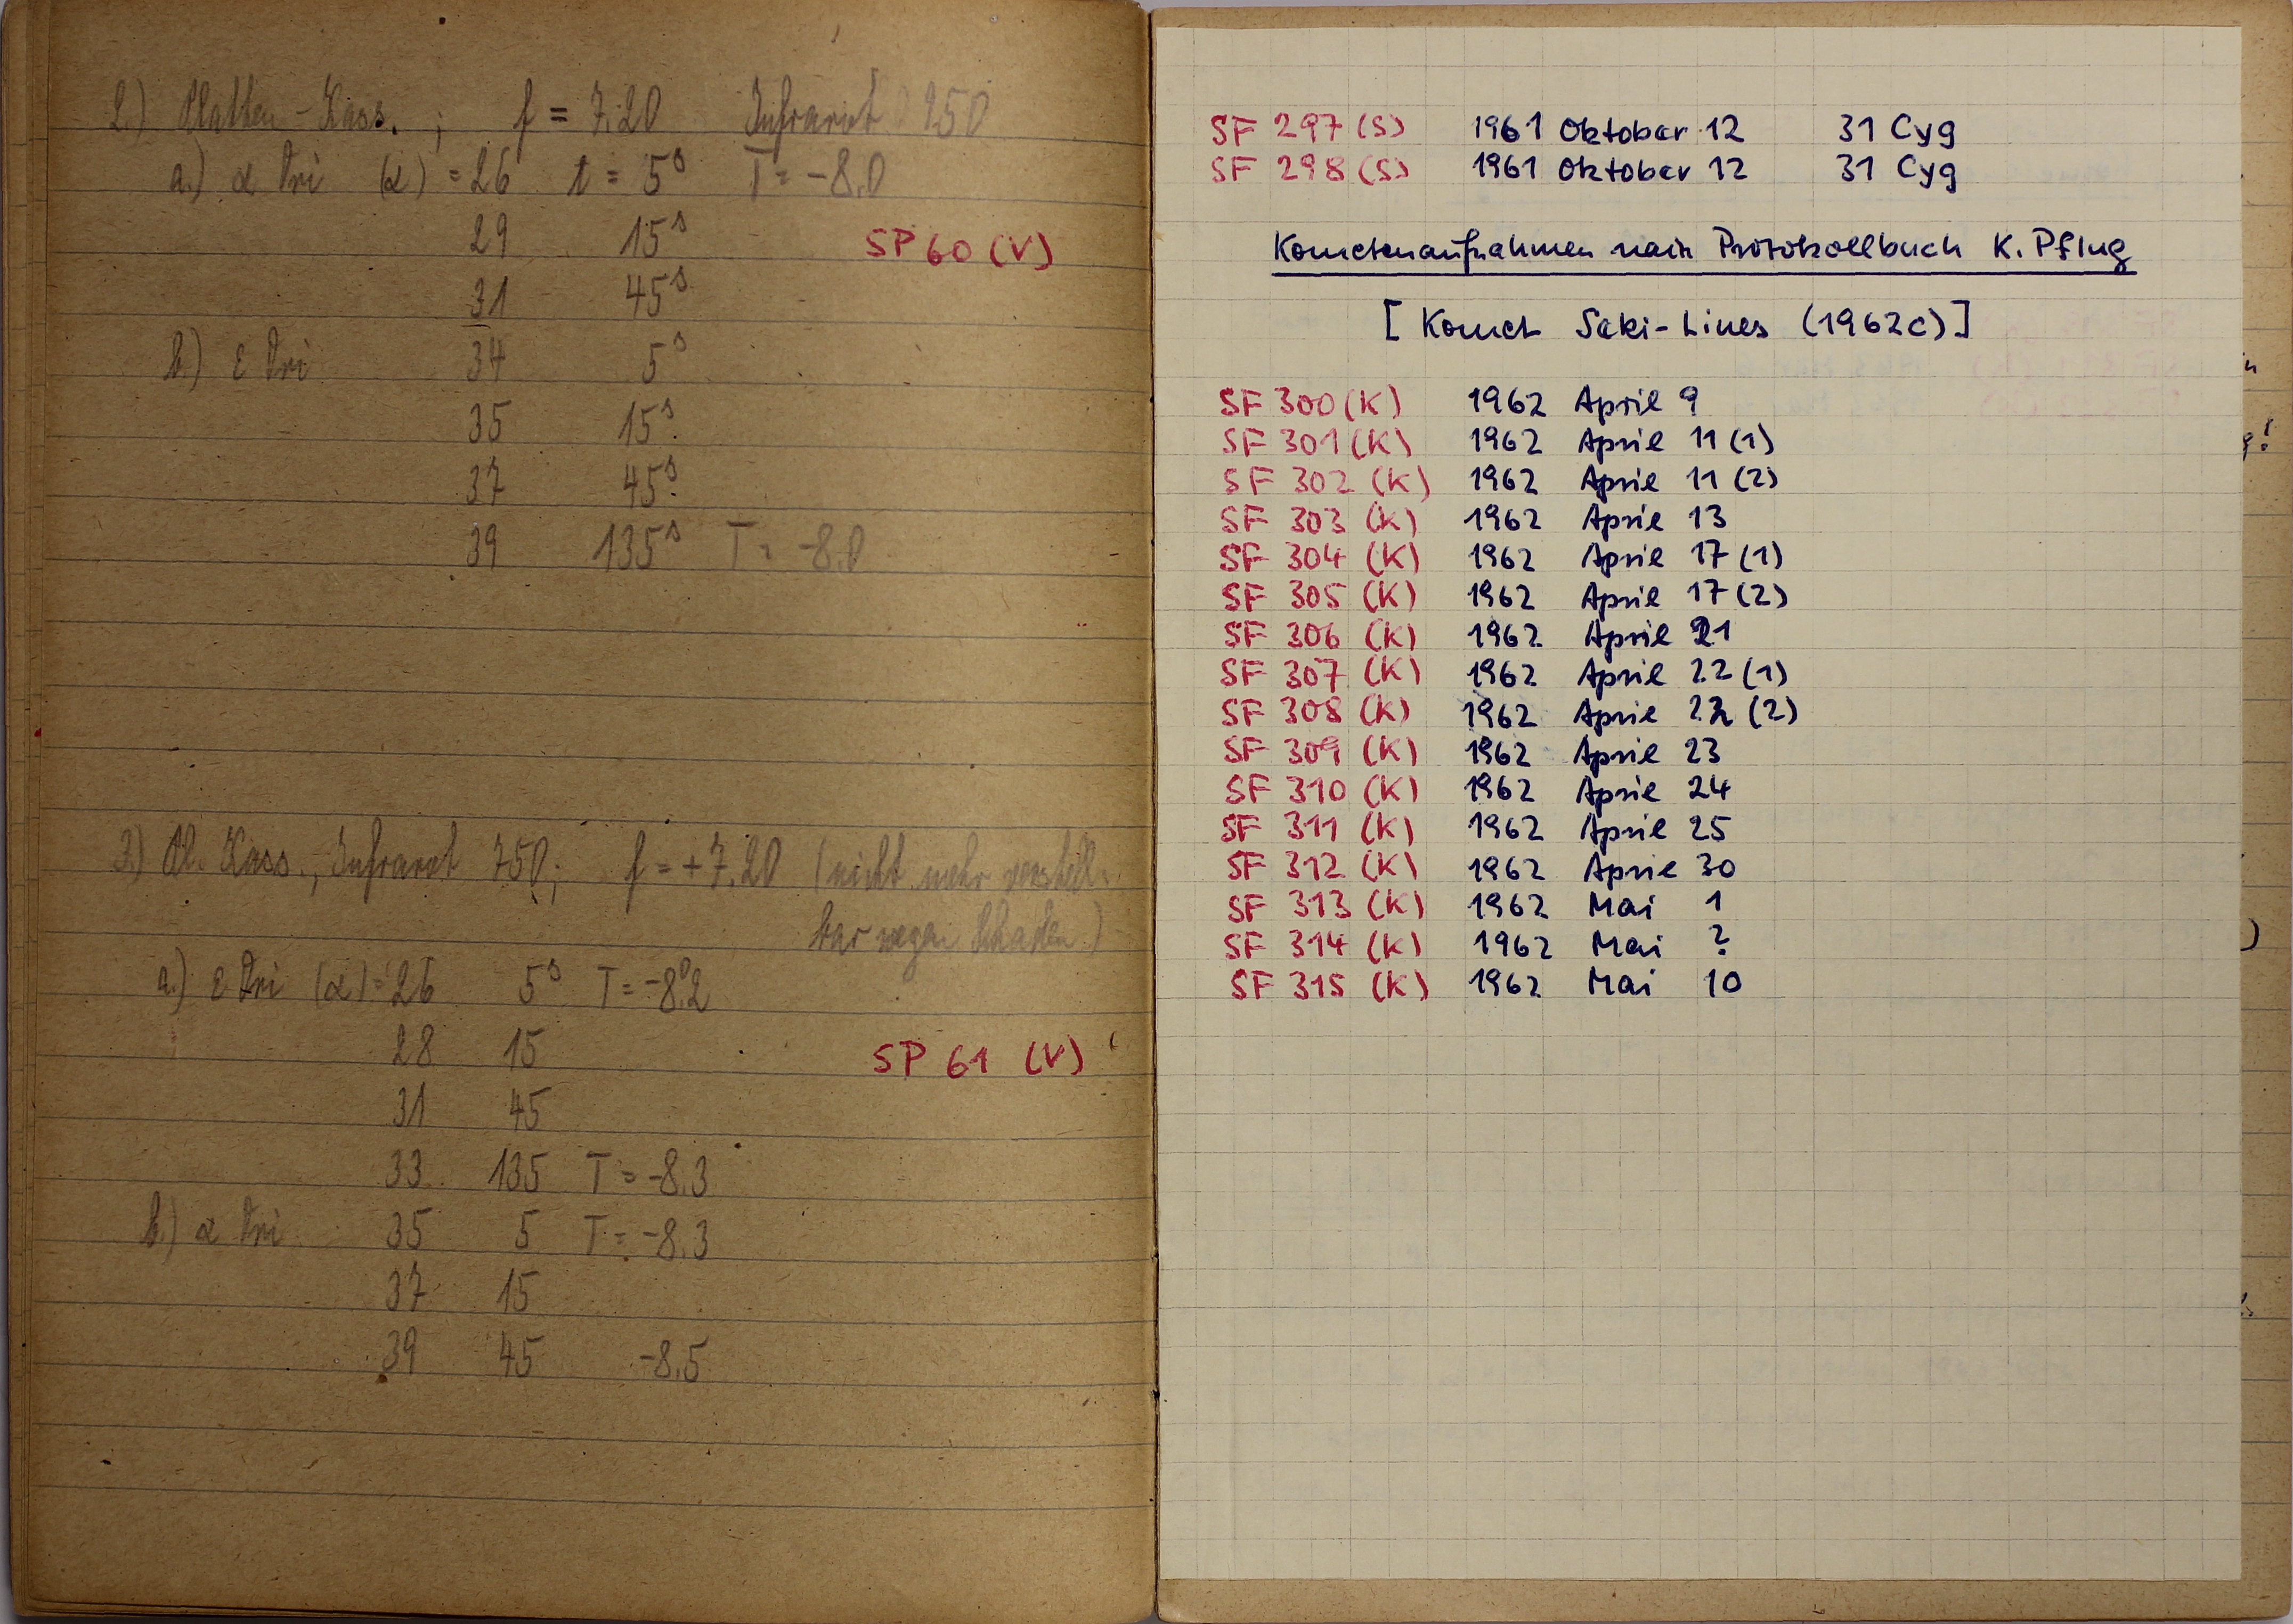 2.) Platten-Kass. ; f = 7.20 Infrarot 950
a.) α Tri (α) = 26 t = 5ˢ T = -8.0
29 15ˢ
SP 60 (V)
31 45ˢ
b.) ε Tri 34 5ˢ
35 15ˢ
37 45ˢ
39 135ˢ T = -8.0
3) Pl. Kass., Infrarot 750; f = +7.20 (nicht mehr verstell-
bar wegen Schaden)
a.) ε Tri (α) = 26 5ˢ T = -8.2
28 15
SP 61 (V)
31 45
33 135 T = -8.3
b.) α Tri 35 5 T = -8.3
37 15
39 45 -8.5
SF 297 (S) 1961 Oktober 12 31 Cyg
SF 298 (S) 1961 Oktober 12 31 Cyg
Kometenaufnahmen nach Protokollbuch K. Pflug
[ Komet Seki-Lines (1962c) ]
SF 300 (K) 1962 April 9
SF 301 (K) 1962 April 11 (1)
SF 302 (K) 1962 April 11 (2)
SF 303 (K) 1962 April 13
SF 304 (K) 1962 April 17 (1)
SF 305 (K) 1962 April 17 (2)
SF 306 (K) 1962 April 21
SF 307 (K) 1962 April 22 (1)
SF 308 (K) 1962 April 22 (2)
SF 309 (K) 1962 April 23
SF 310 (K) 1962 April 24
SF 311 (K) 1962 April 25
SF 312 (K) 1962 April 30
SF 313 (K) 1962 Mai 1
SF 314 (K) 1962 Mai ?
SF 315 (K) 1962 Mai 10